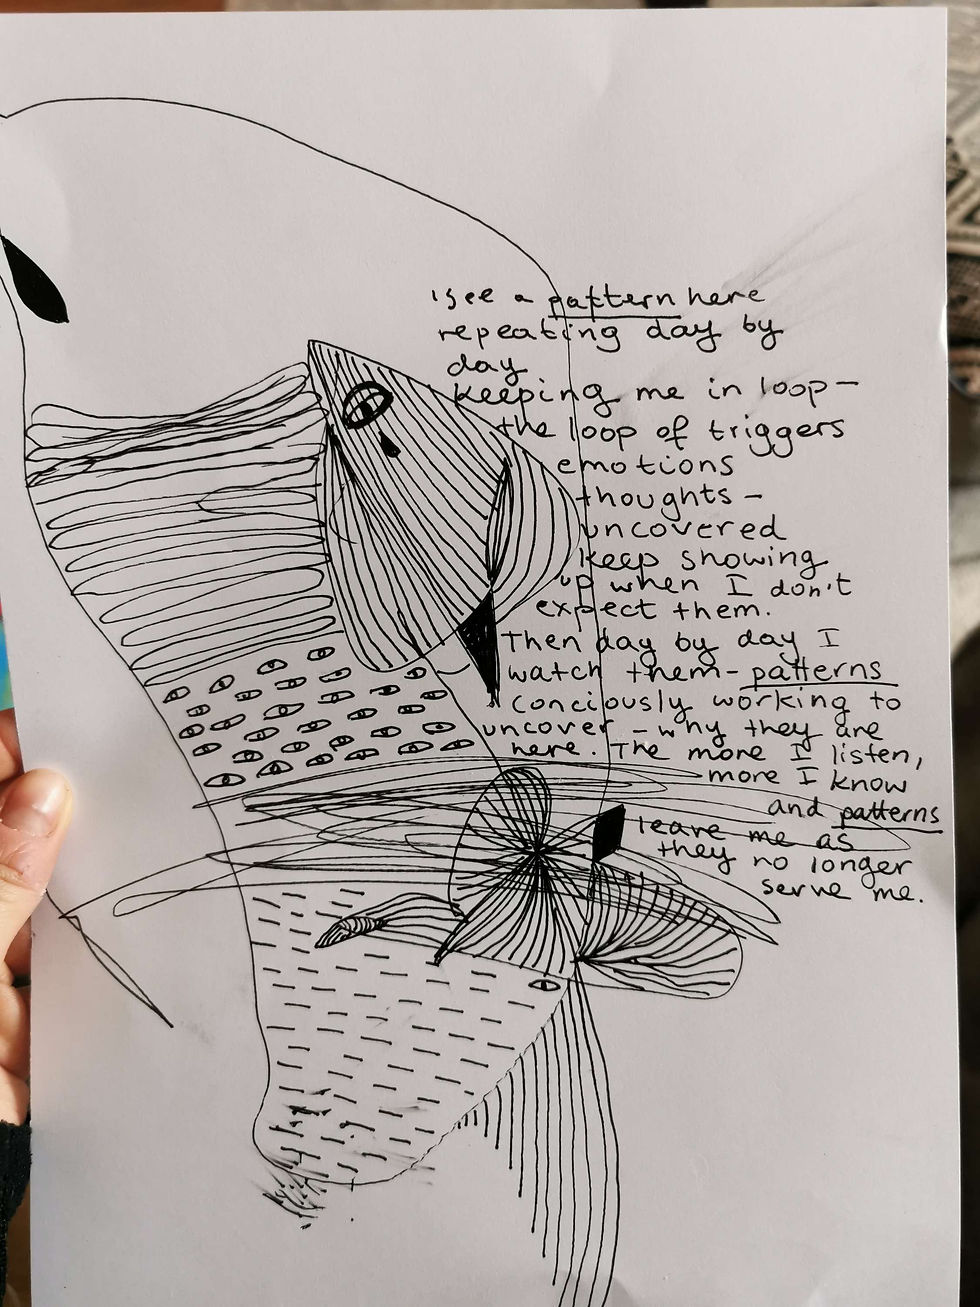 I see a pattern here
repeating day by
day
keeping me in loop –
the loop of triggers
emotions
thoughts –
uncovered
keep showing
up when I don't
expect them.
Then day by day I
watch them – patterns
conciously working to
uncover – why they are
here. The more I listen,
more I know
and patterns
leave me as
they no longer
serve me.